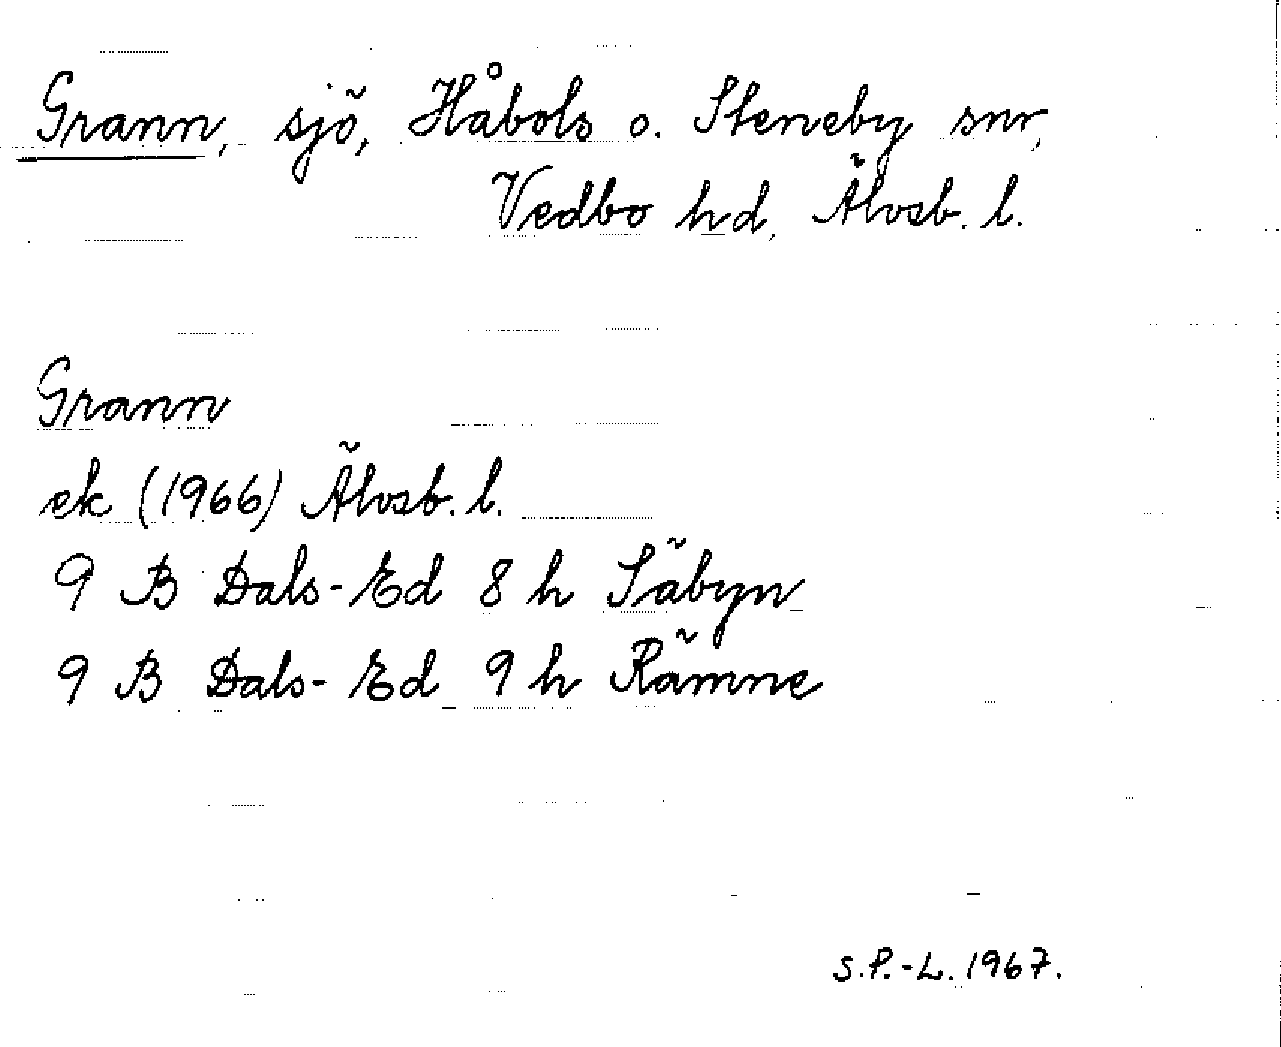 Grann, sjö, Håbols o. Steneby snr,
Vedbo hd, Älvsb. l.
Grann
ek (1966) Älvsb. l.
9 B Dals-Ed 8 h Säbyn
9 B Dals-Ed 9 h Rämne
S.P.-L. 1967.